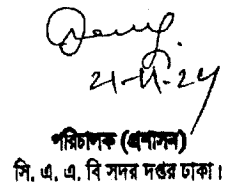 21-11-24
পরিচালক (প্রশাসন)
সি, এ, এ, বি সদর দপ্তর ঢাকা।